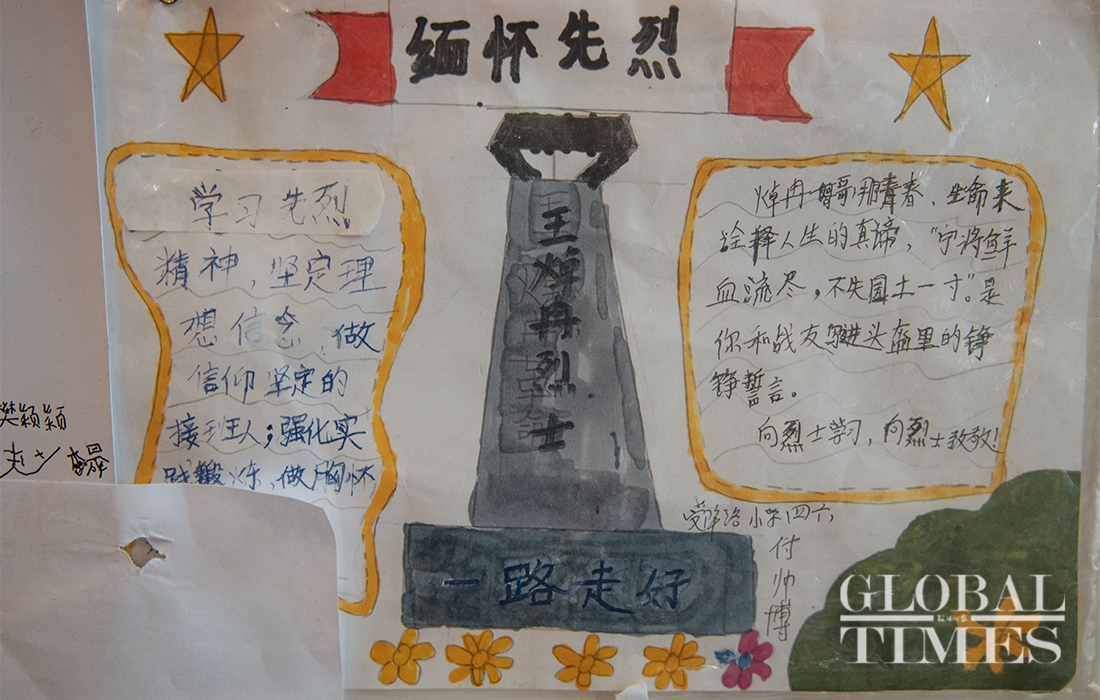 缅怀先烈
学习先烈
精神，坚定理
想信念，做
信仰坚定的
接班人；强化实
践锻炼，做胸怀
樊颖颖
王焯冉烈士
一路走好
焯冉哥哥用青春、生命来
诠释人生的真谛，“宁将鲜
血流尽，不失国土一寸”。是
你和战友写进头盔里的铮
铮誓言。
向烈士学习，向烈士致敬！
受降路小学四六
付帅博
GLOBAL
TIMES